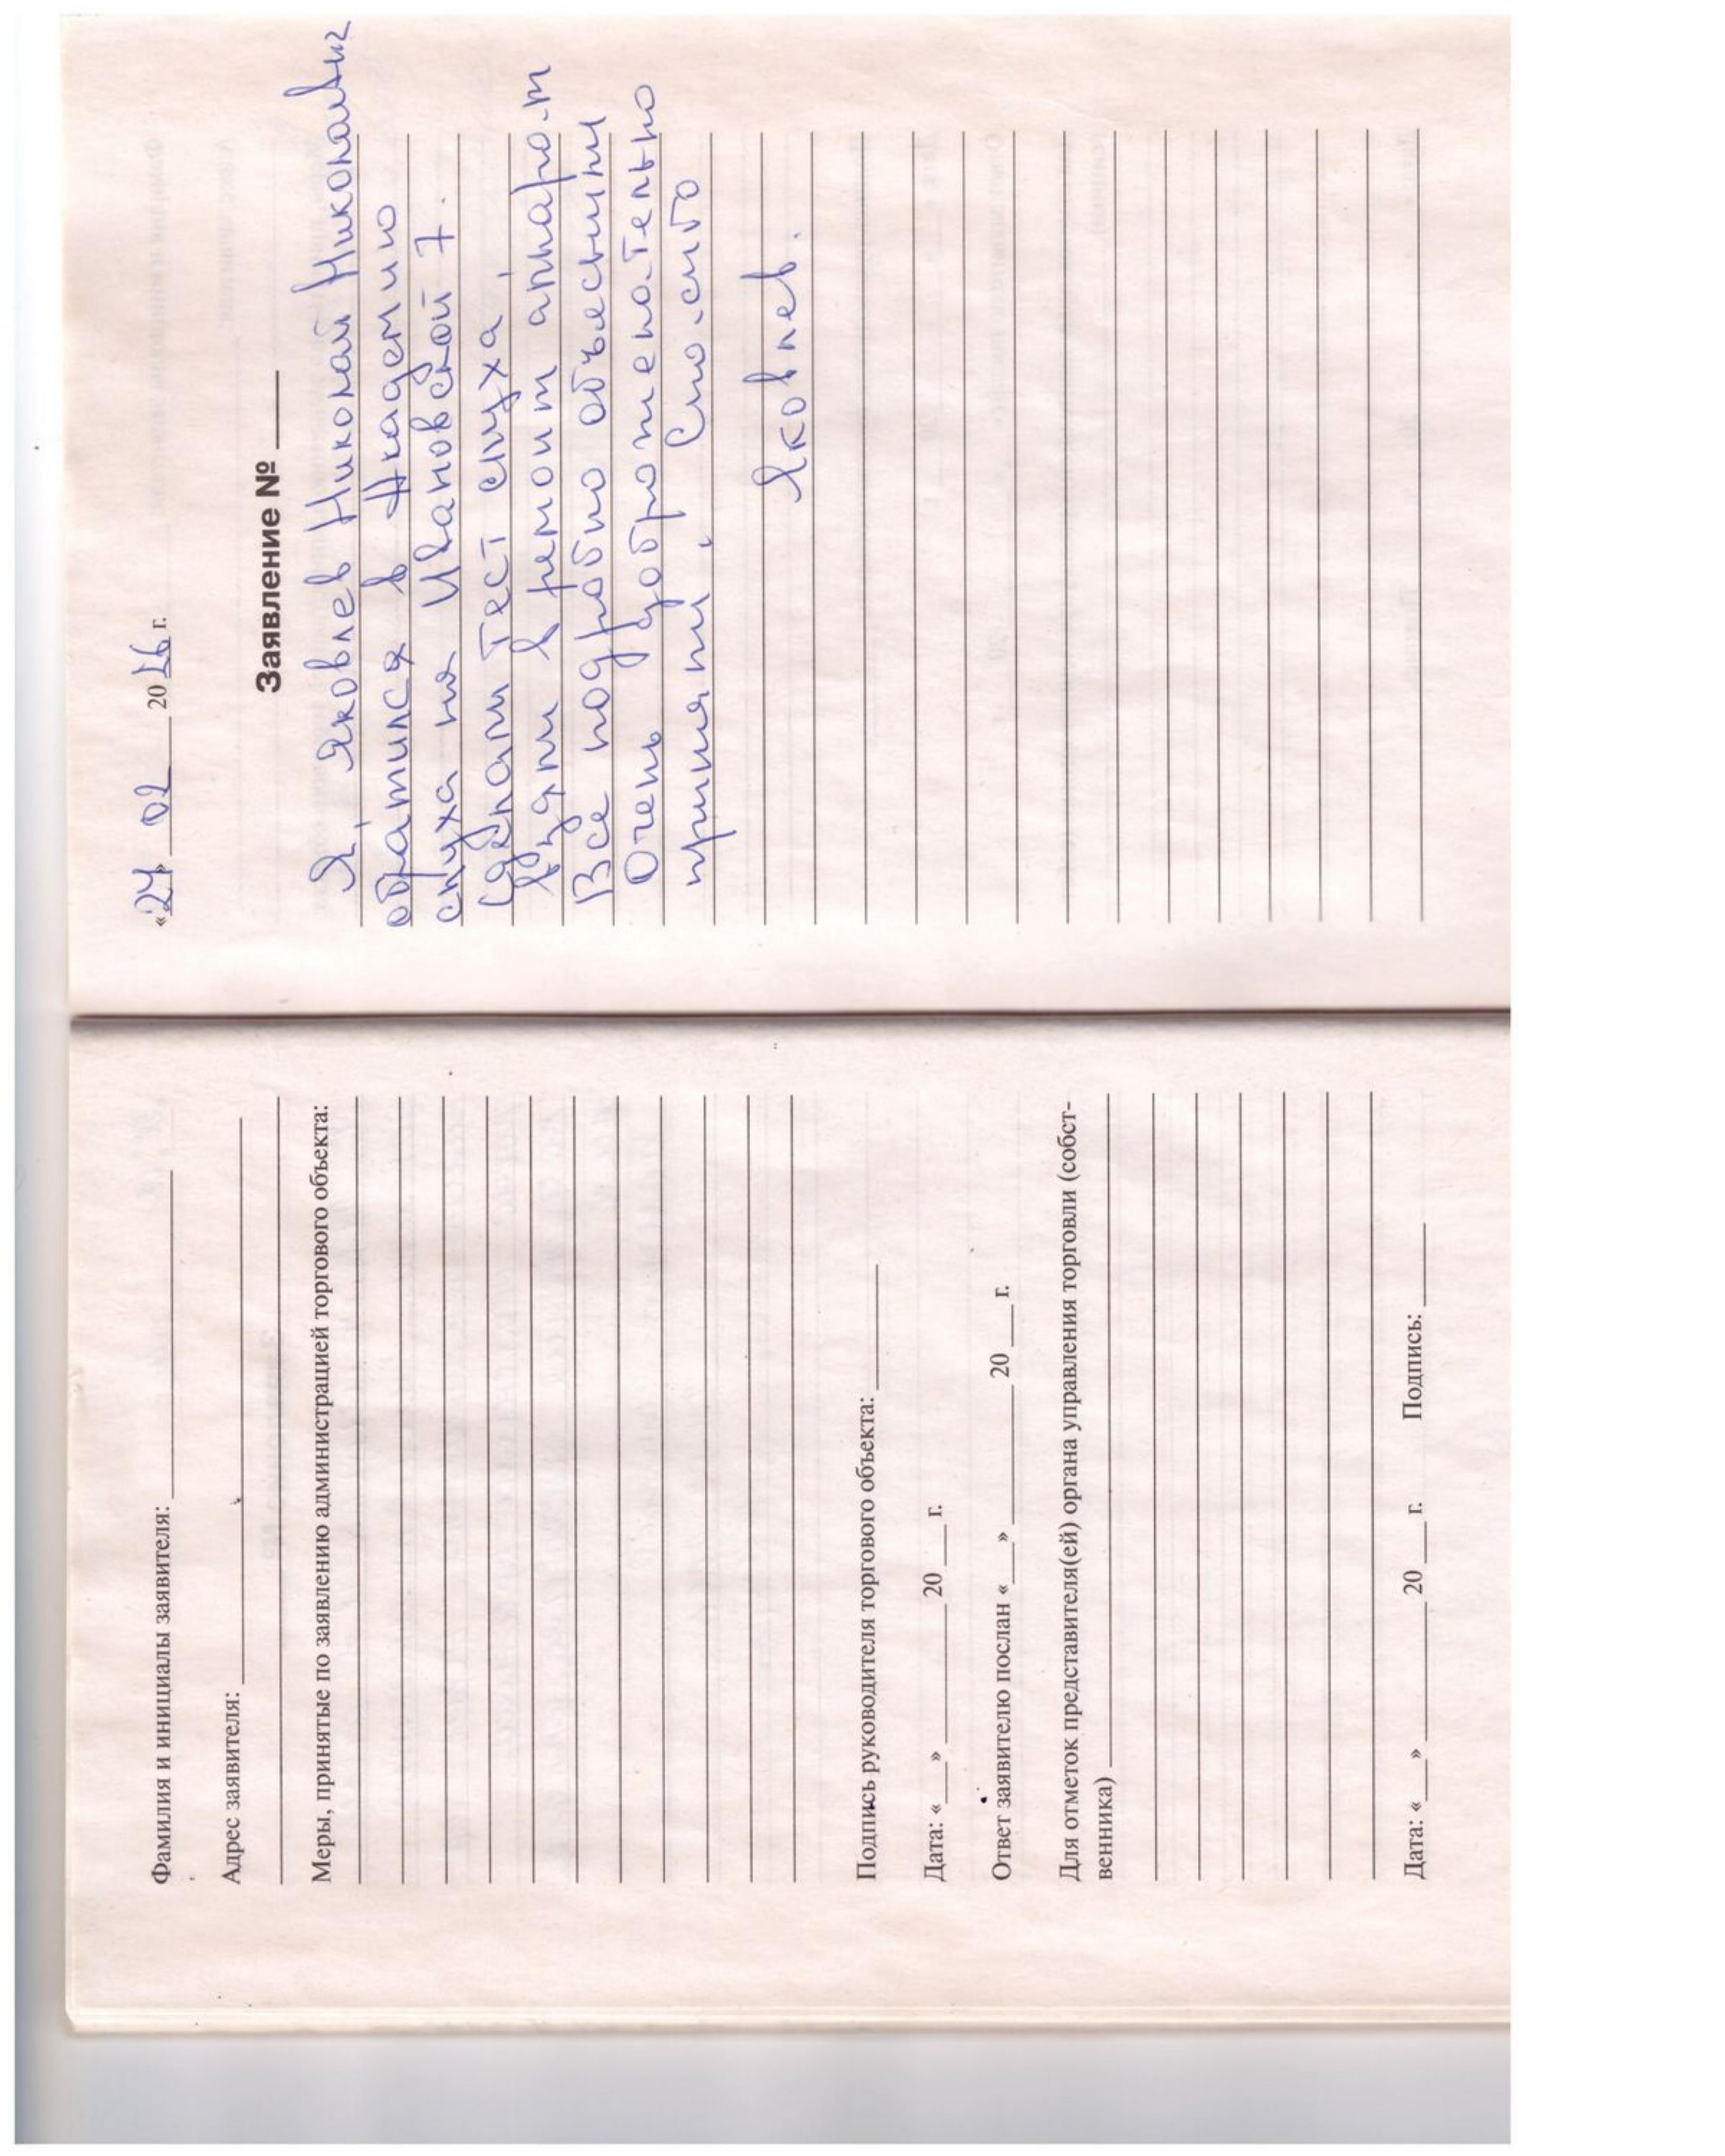 Фамилия и инициалы заявителя: ____
Адрес заявителя: ____
Меры, принятые по заявлению администрацией торгового объекта:
Подпись руководителя торгового объекта: ____
Дата: «___» ____ 20___ г.
Ответ заявителю послан «___» ____ 20___ г.
Для отметок представителя(ей) органа управления торговли (собст-
венника) ____
Дата: «___» ____ 20___ г. Подпись: ____
«24» 02 2026 г.
Заявление № ____
Я, Яковлев Николай Николаевич
обратился в Академию
слуха на Ивановской 7.
Сделали тест слуха,
взяли в ремонт аппарат
Все подробно объяснили
Очень доброжелательно
приняли. Спасибо
Яковлев.